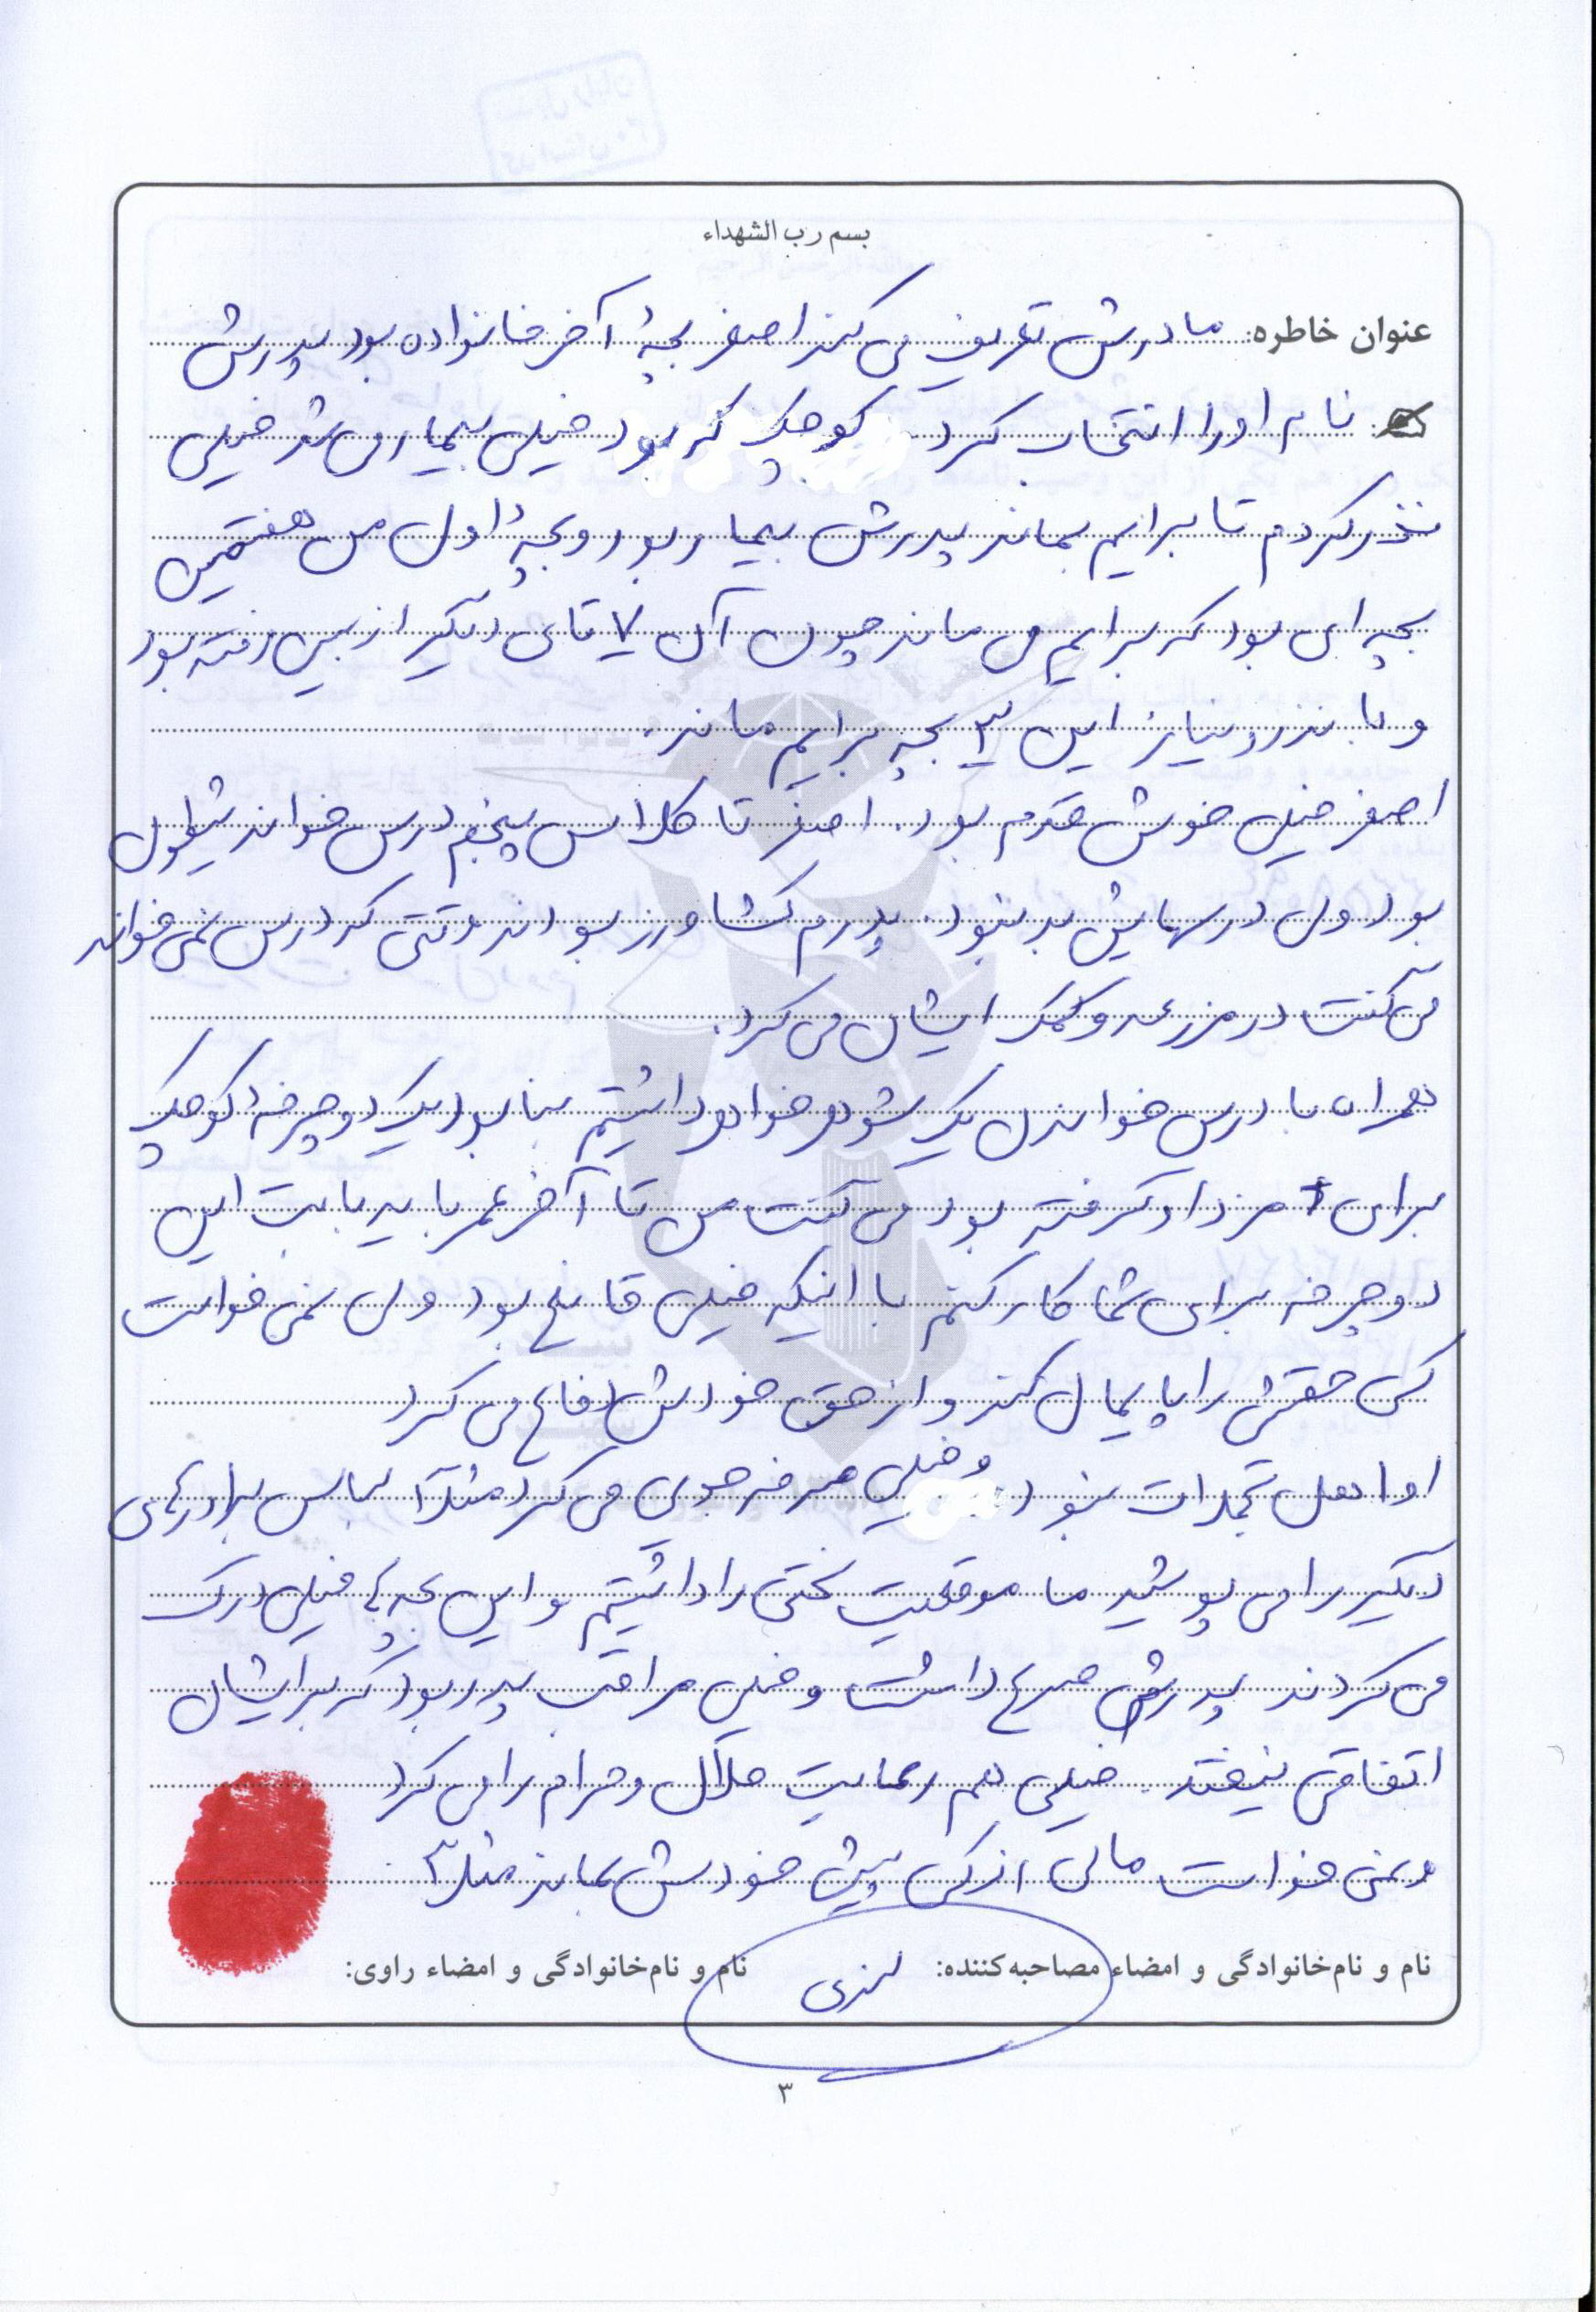 بسم رب الشهداء
عنوان خاطره: مادرش تعریف می کند اصغر بچهٔ آخر خانواده بود پدرش
نام او را انتخاب کرد کوچک که بود خیلی بیمار می شد خیلی
نذر کردم تا برایم بماند پدرش بیمار بود و بچهٔ اول من هفتمین
بچه ای بود که برایم می ماند چون آن ۷ تای دیگر از بین رفته بود
و با نذر و نیاز این ۳ بچه برایم ماند.
اصغر خیلی خوش قدم بود. اصغر تا کلاس پنجم درس خواند شیطون
بود ولی درسهایش بد نبود. پدرم کشاورز بودند وقتی که درس نمی خواند
می گشت در مزرعه و کمک ایشان می کرد.
همراه با درس خواندن یک شوهر خواهر داشتیم بنا بود یک دوچرخهٔ کوچک
برای مزد او گرفته بود می گفت من تا آخر عمر باید بابت این
دوچرخه برای شما کار کنم با اینکه خیلی قانع بود ولی نمی خواست
کسی حقش را پایمال کند و از حق خودش دفاع می کرد
او اهل تجملات نبود و خیلی صرفه جویی می کرد مثلاً لباس برادرهای
دیگر را می پوشید ما موقعیت سختی را داشتیم و این بچه ها خیلی درک
می کردند پدرش صرع داشت و خیلی مراقب پدر بود که برایشان
اتفاقی نیفتد. خیلی هم رعایت حلال و حرام را می کرد
و نمی خواست مالی از کسی پیش خودش بماند مثلاً
نام و نام‌خانوادگی و امضاء مصاحبه‌کننده: نام و نام‌خانوادگی و امضاء راوی:
۳